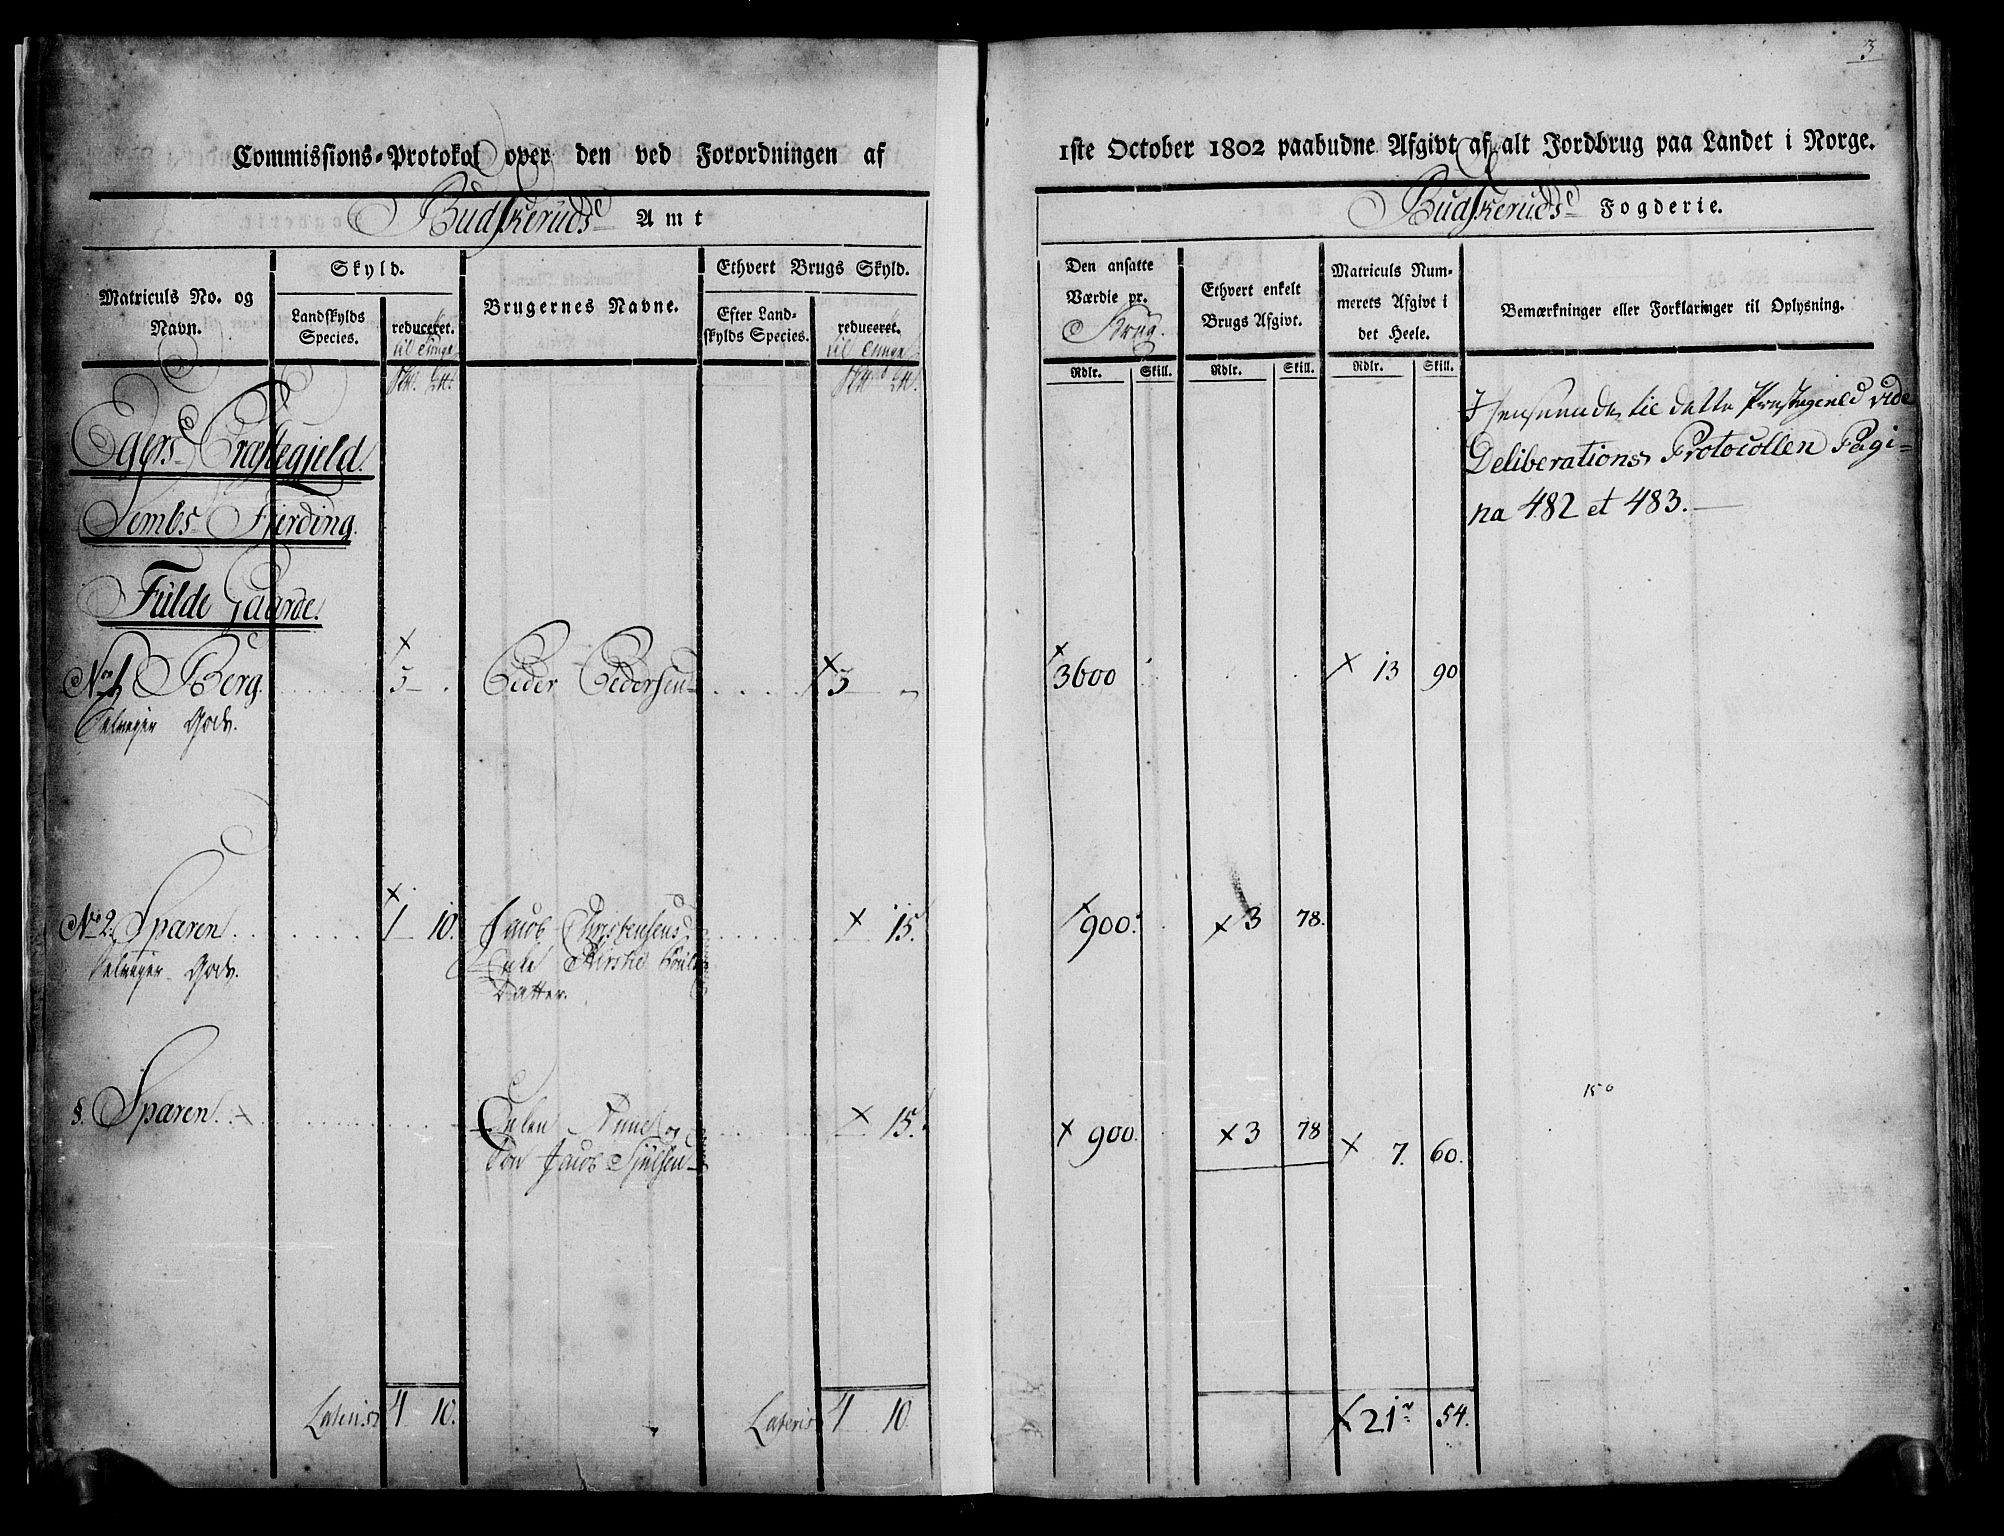 3
Commissions-Protokol over den ved Forordningen af
1ste October 1802 paabudne Afgivt af alt Jordbrug paa Landet i Norge.
Budskeruds Amt
Budskeruds Fogderie.
Matriculs No. og Navn.
Skyld.
Landskylds Species.
reduceret.
til Tunge
Brugernes Navne.
Ethvert Brugs Skyld.
Efter Landskylds Species.
reduceret.
til Tunge
Den ansatte Værdie pr. Brug.
Ethvert enkelt Brugs Afgivt.
Matriculs Nummerets Afgivt i det Heele.
Bemærkninger eller Forklaringer til Oplysning.
Rdlr. Skill. Rdlr. Skill. Rdlr. Skill.
Egers Præstegjeld.
I henseende til dette Præstegield vide
Deliberations Protocollen Pagi-
na 482 et 483.
Sembs Fierding.
Fulde Gaarde.
No 1 Berg. 3 Peder Pedersen 3 3600 13 90
Selveyer Gods.
No 2. Sparen. 1 10. Jacob Christensens 15. 900. 3 78.
Selveyer Gods.
Datter.
§. Sparen. 15. 900. 3 78 7. 60.
Søn Jacob
150
Lateris 4 10. Lateris 4 10 21 54.